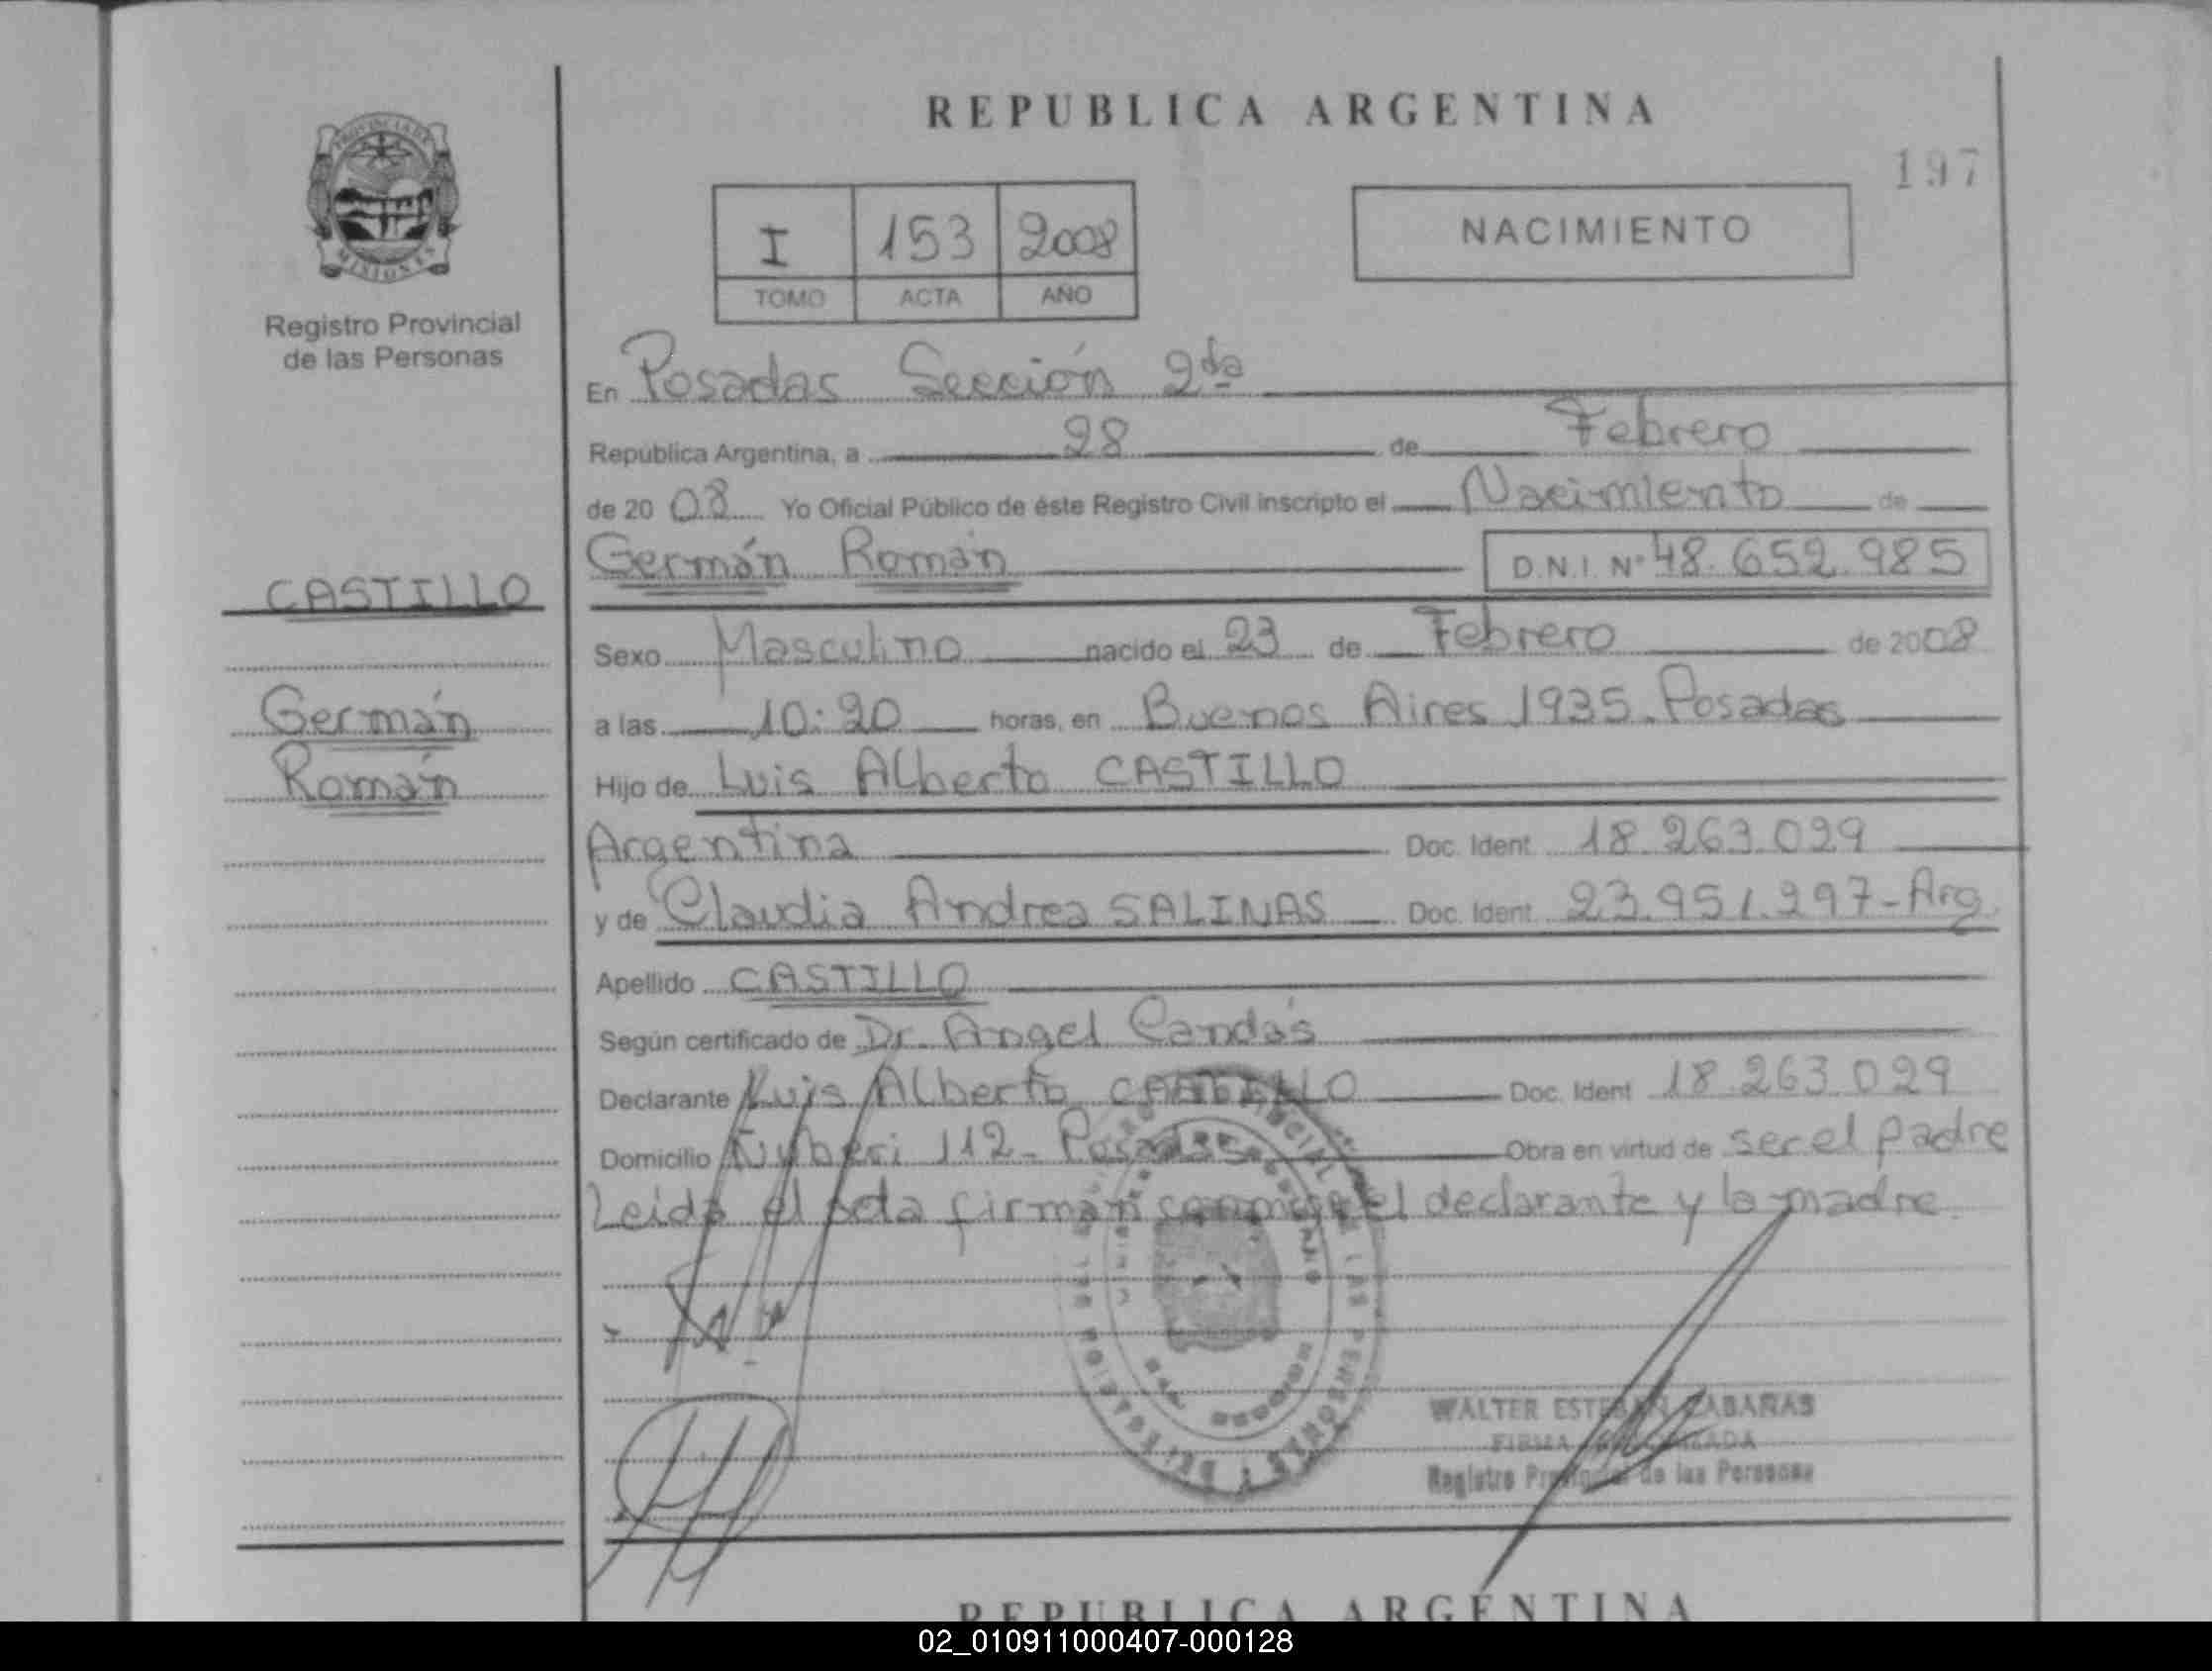 PROVINCIA DE
MISIONES
Registro Provincial
de las Personas
CASTILLO
Germán
Román
REPUBLICA ARGENTINA
197
I 153 2008
TOMO ACTA AÑO
NACIMIENTO
En Posadas Sección 2da
República Argentina, a 28 de Febrero
de 2008 Yo Oficial Público de éste Registro Civil inscripto el Nacimiento de
Germán Román D.N.I. Nº 48.652.985
Sexo Masculino nacido el 23 de Febrero de 2008
a las 10:20 horas, en Buenos Aires 1935. Posadas
Hijo de Luis Alberto CASTILLO
Argentina Doc. Ident. 18.263.029
y de Claudia Andrea SALINAS Doc. Ident. 23.951.297-Arg.
Apellido CASTILLO
Según certificado de Dr. Angel Candás
Declarante Luis Alberto CASTILLO Doc. Ident. 18.263.029
Domicilio 112- Posadas Obra en virtud de ser el padre
Leída el acta firman conmigo el declarante y la madre.
WALTER ESTEBAN CABAÑAS
FIRMA
Registro Provincial de las Personas
REPUBLICA ARGENTINA
02_010911000407-000128